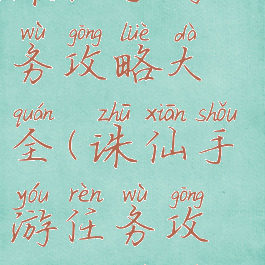 wù gōng lüè dà
务攻略大
quán zhū xiān shǒu
全(诛仙手
yóu rèn wù gōng
游任务攻